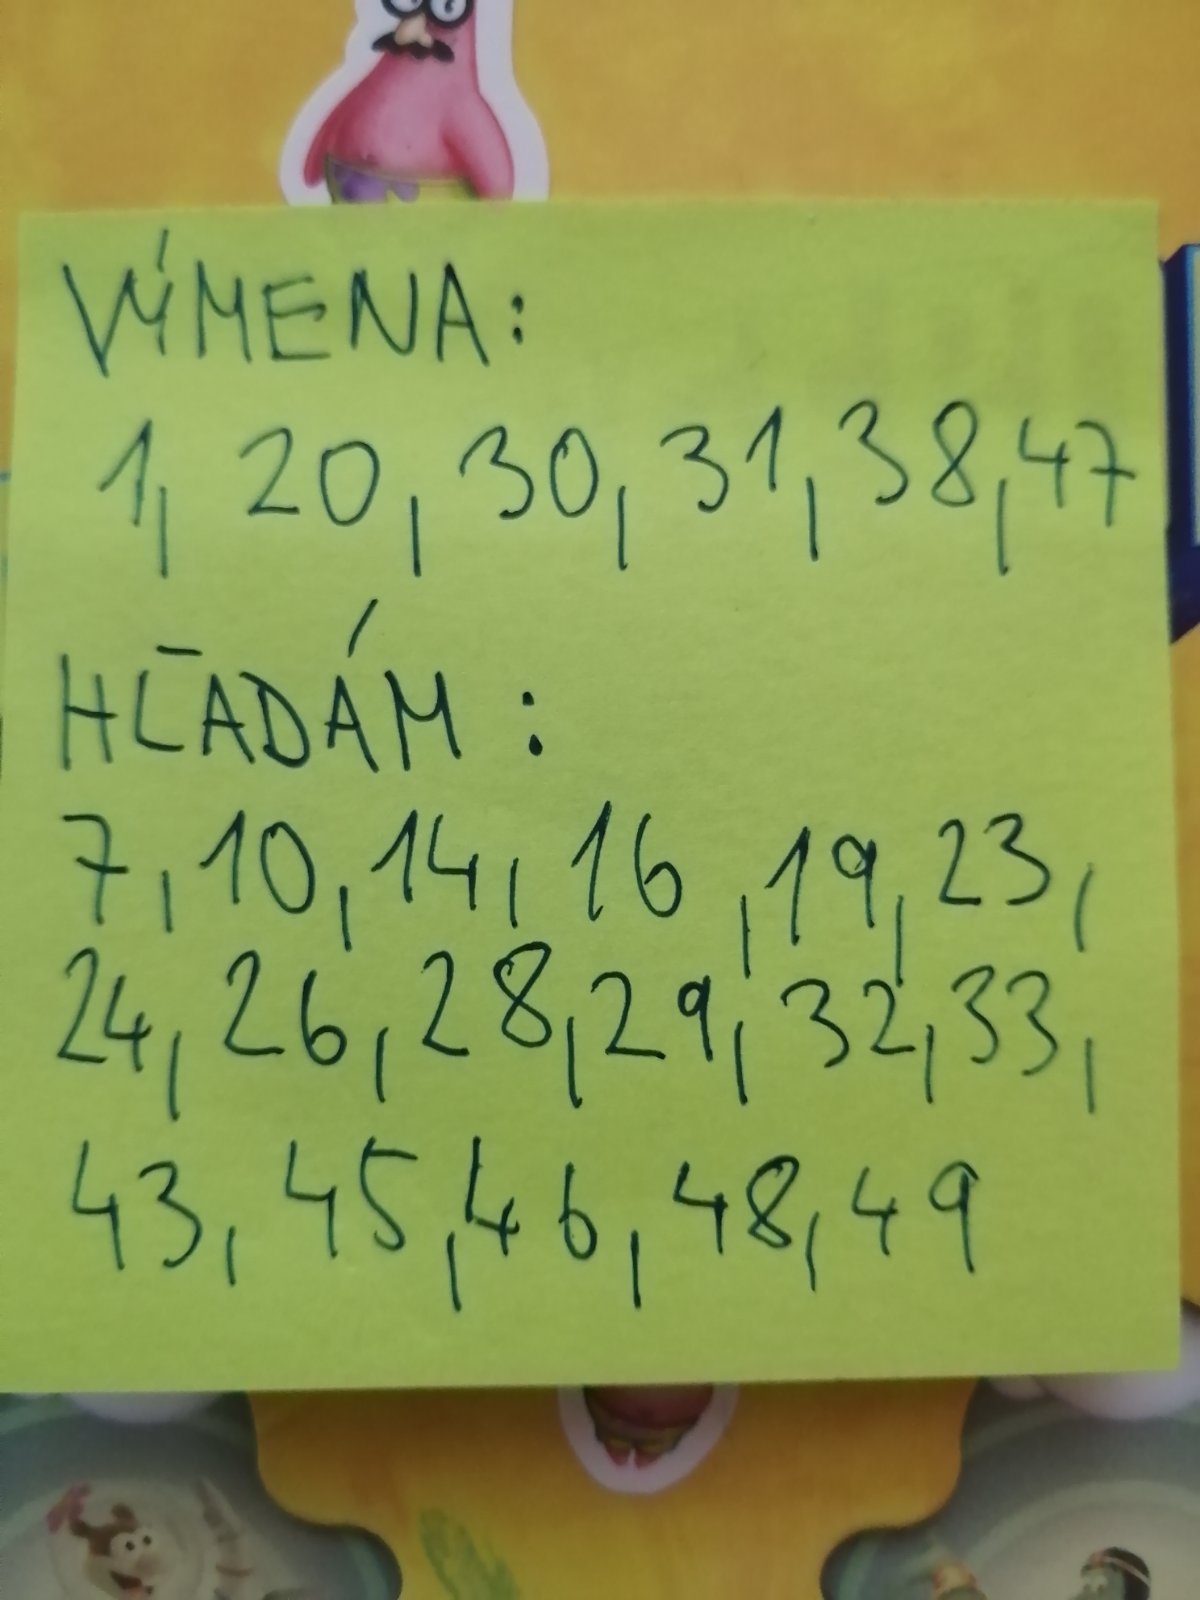 VÝMENA:
1, 20, 30, 31, 38, 47
HĽADÁM:
7, 10, 14, 16, 19, 23,
24, 26, 28, 29, 32, 33,
43, 45, 46, 48, 49